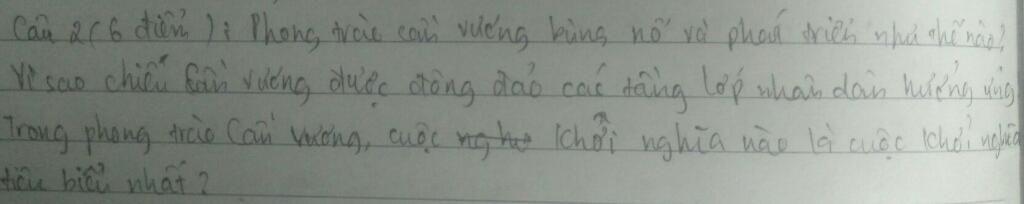 Câu 2 (6 điểm): Phong trào cần vương bùng nổ và phát triển như thế nào?
Vì sao chiếu Cần vương được đông đảo các tầng lớp nhân dân hưởng ứng
Trong phong trào Cần vương, cuộc khởi nghĩa nào là cuộc khởi nghĩa
tiêu biểu nhất?